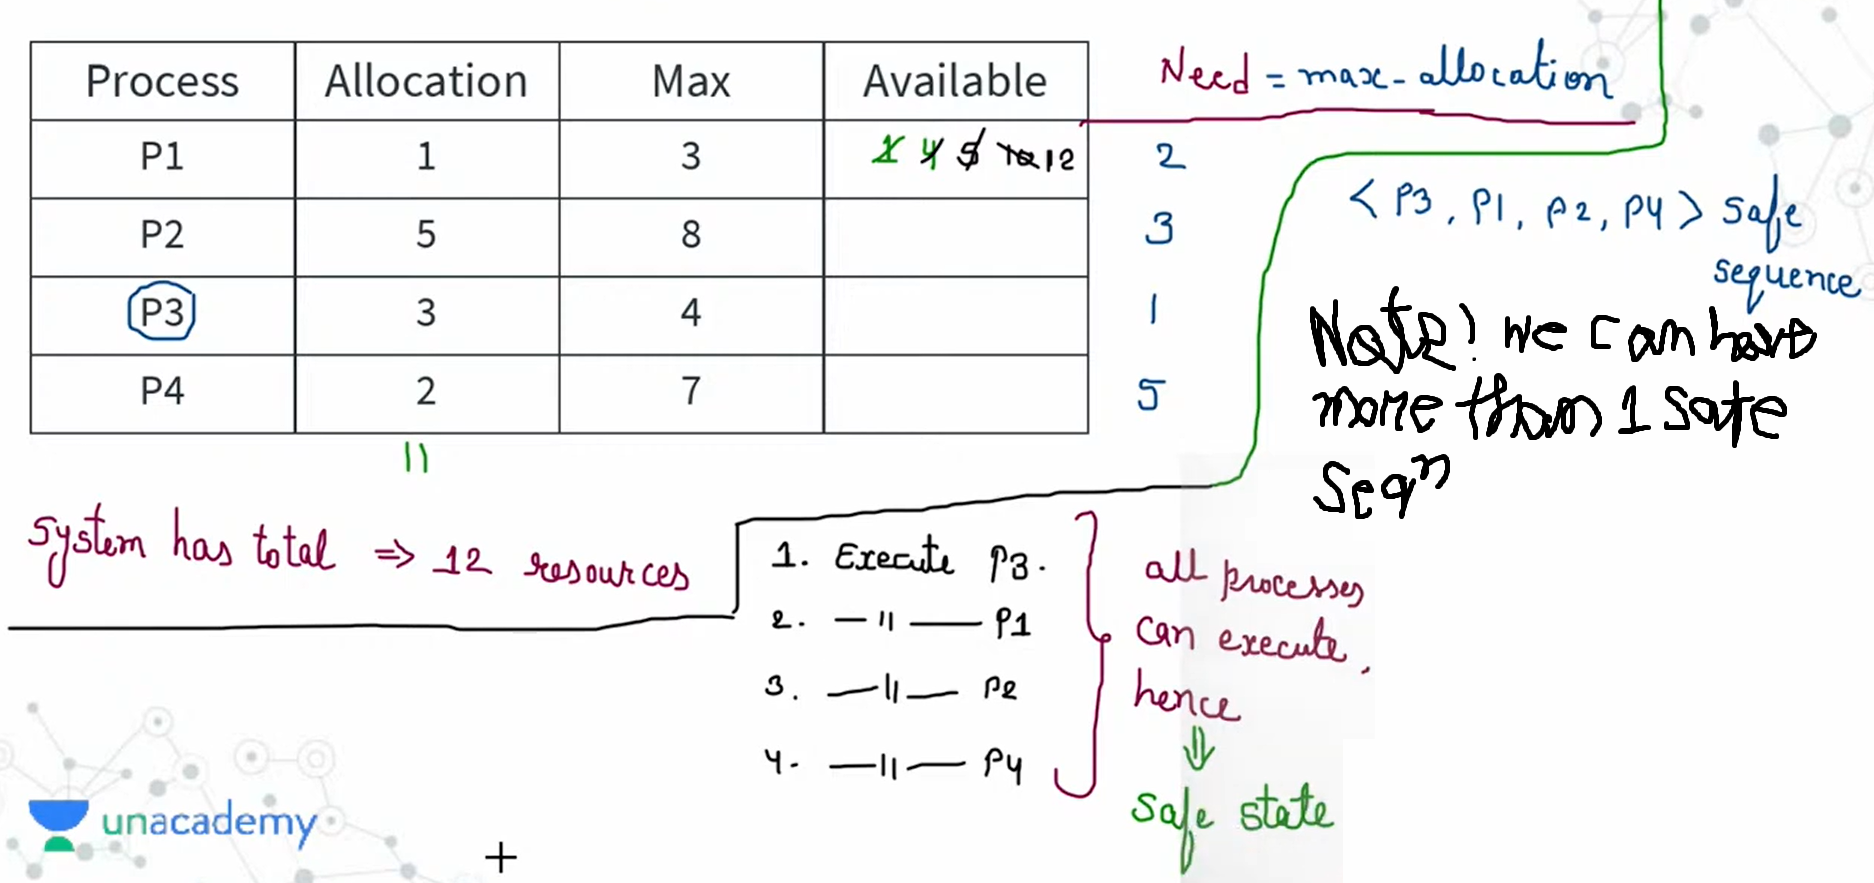 Process Allocation Max Available
P1 1 3 1 4 5 10 12
P2 5 8
P3 3 4
P4 2 7
11
Need = max - allocation
2
3
1
5
< P3, P1, P2, P4 > safe
sequence
Note! we can have
more than 1 safe
Seqn
System has total ⇒ 12 resources
1. Execute P3.
2. — 〃 — P1
3. — 〃 — P2
4. — 〃 — P4
all processes
can execute,
hence
⇓
Safe state
unacademy